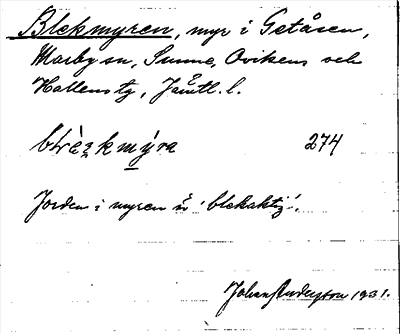 Blekmyren, myr i Getåsen,
Marby sn, Sunne, Ovikens och
Hallens tg, Jämtl. l.
274
Jorden i myren är 'blekaktig'.
Johan Anderzon 1931.